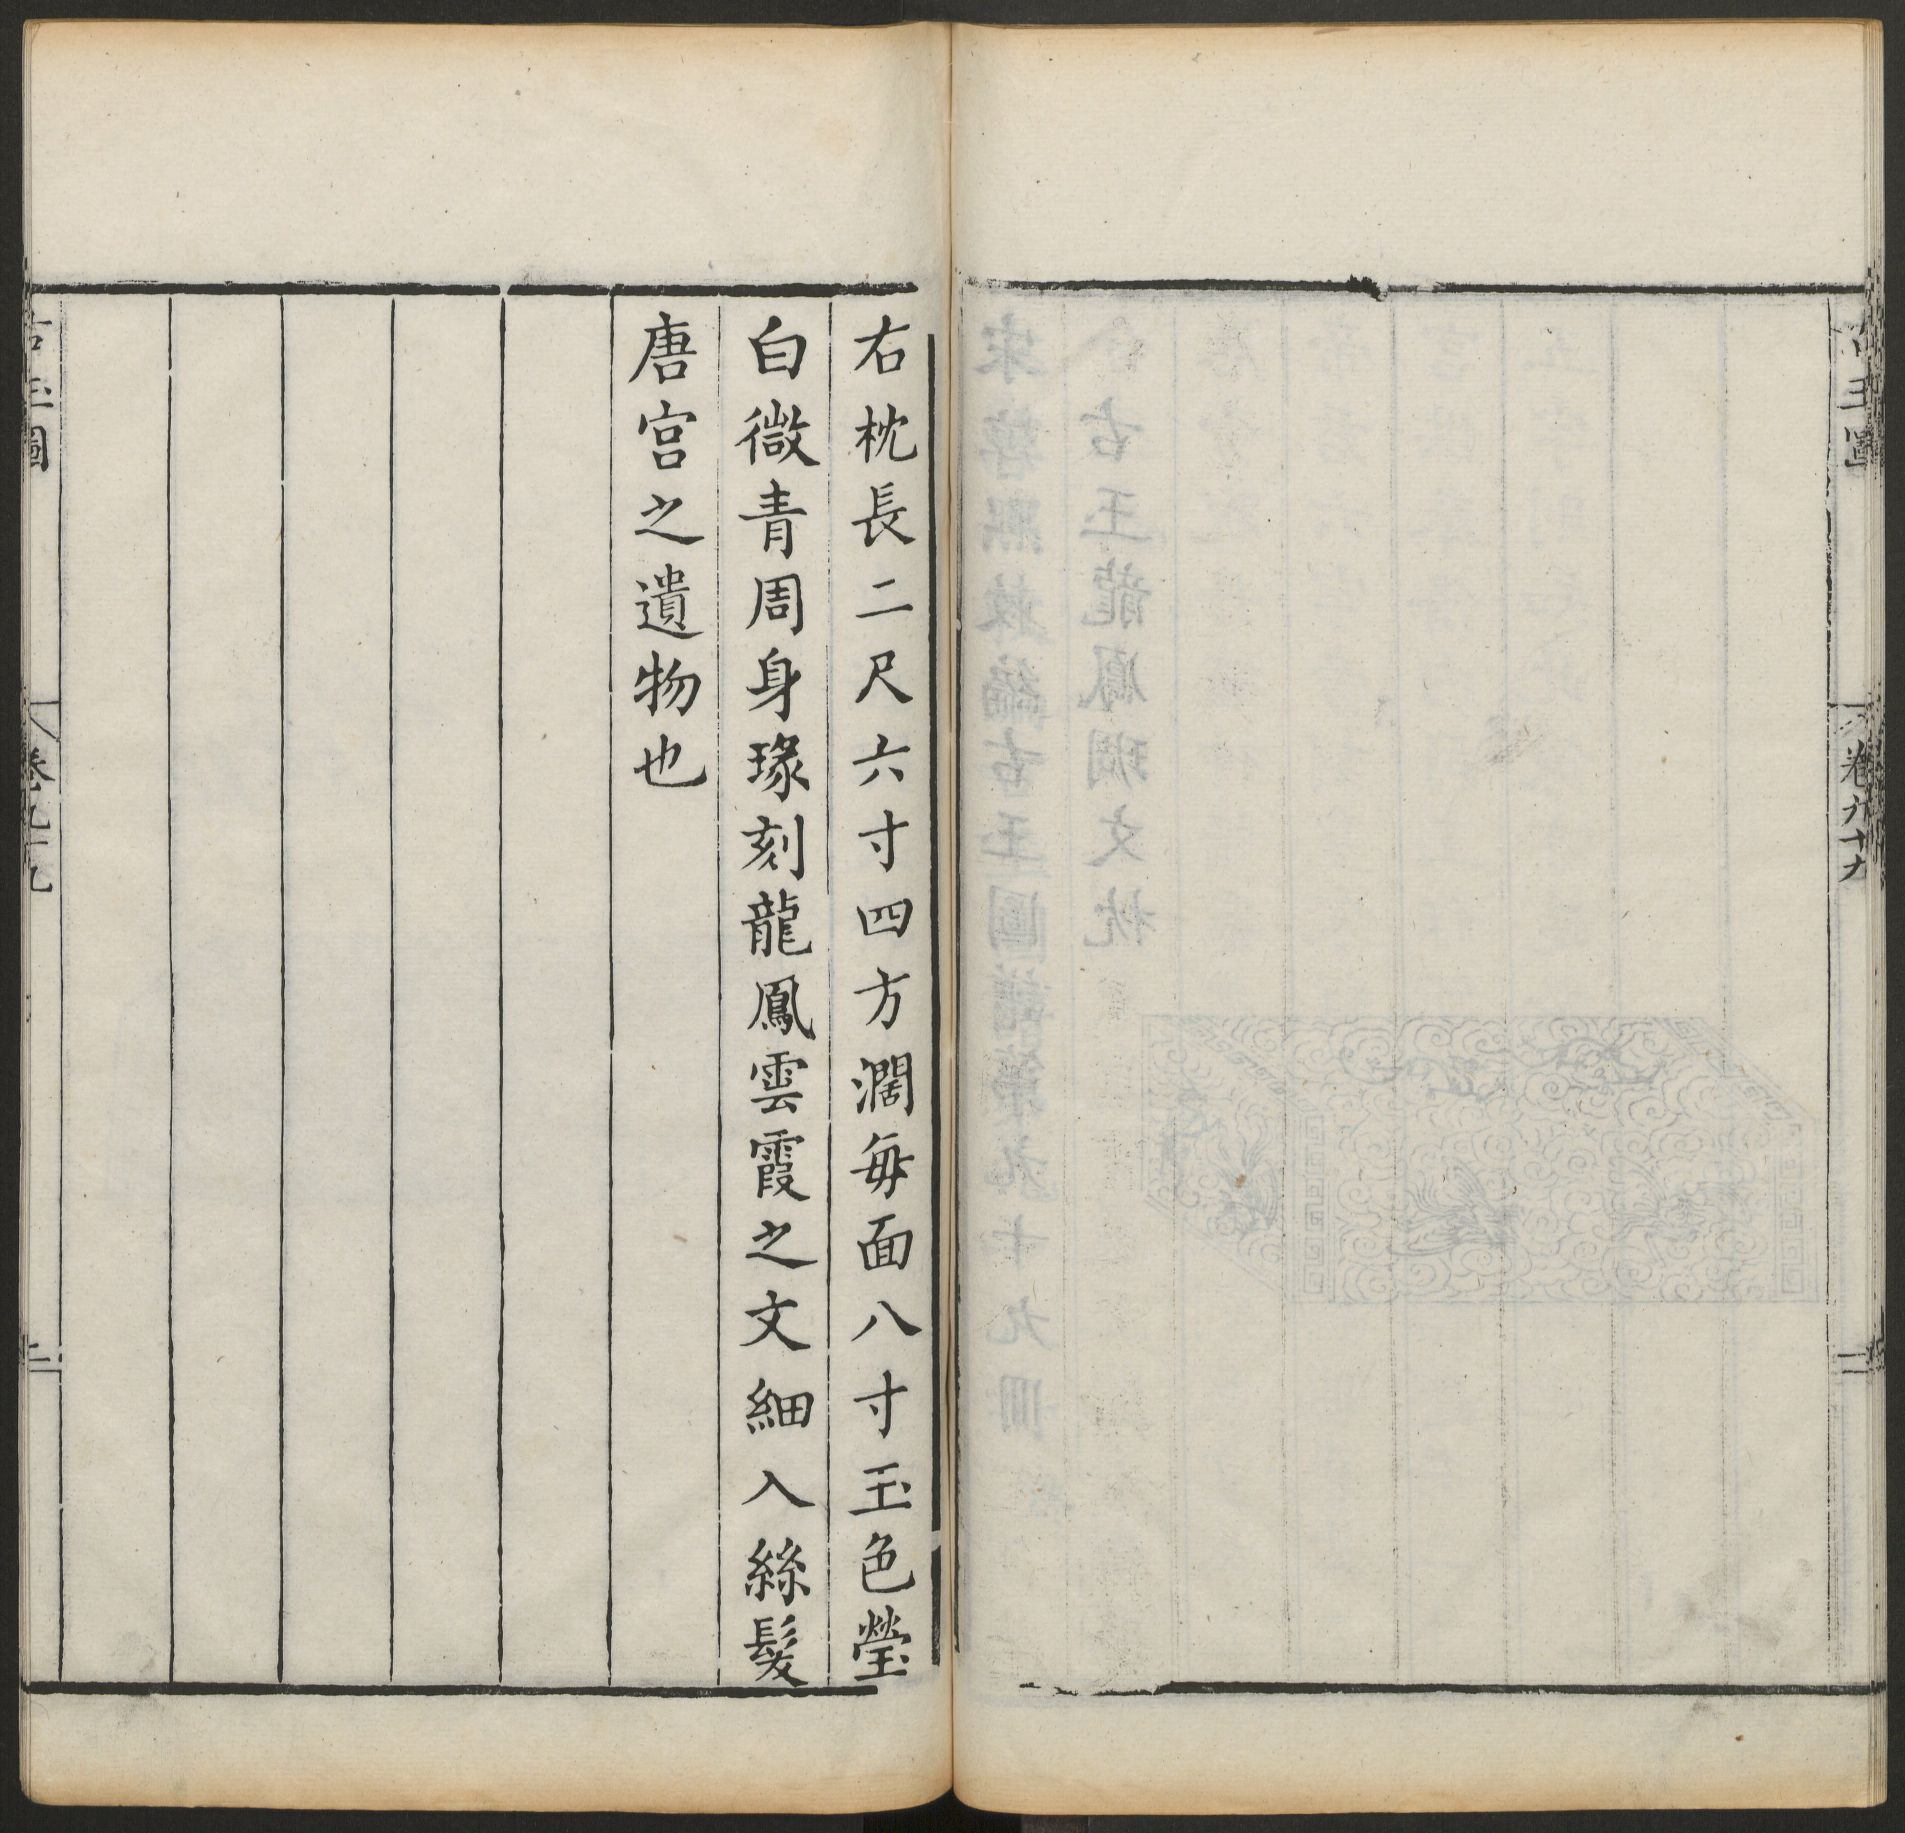 古玉圖
卷九十九
二
右枕長二尺六寸四方濶每面八寸玉色瑩
白微青周身瑑刻龍鳳雲霞之文細入絲髮
唐宫之遺物也
古玉圖
卷九十九